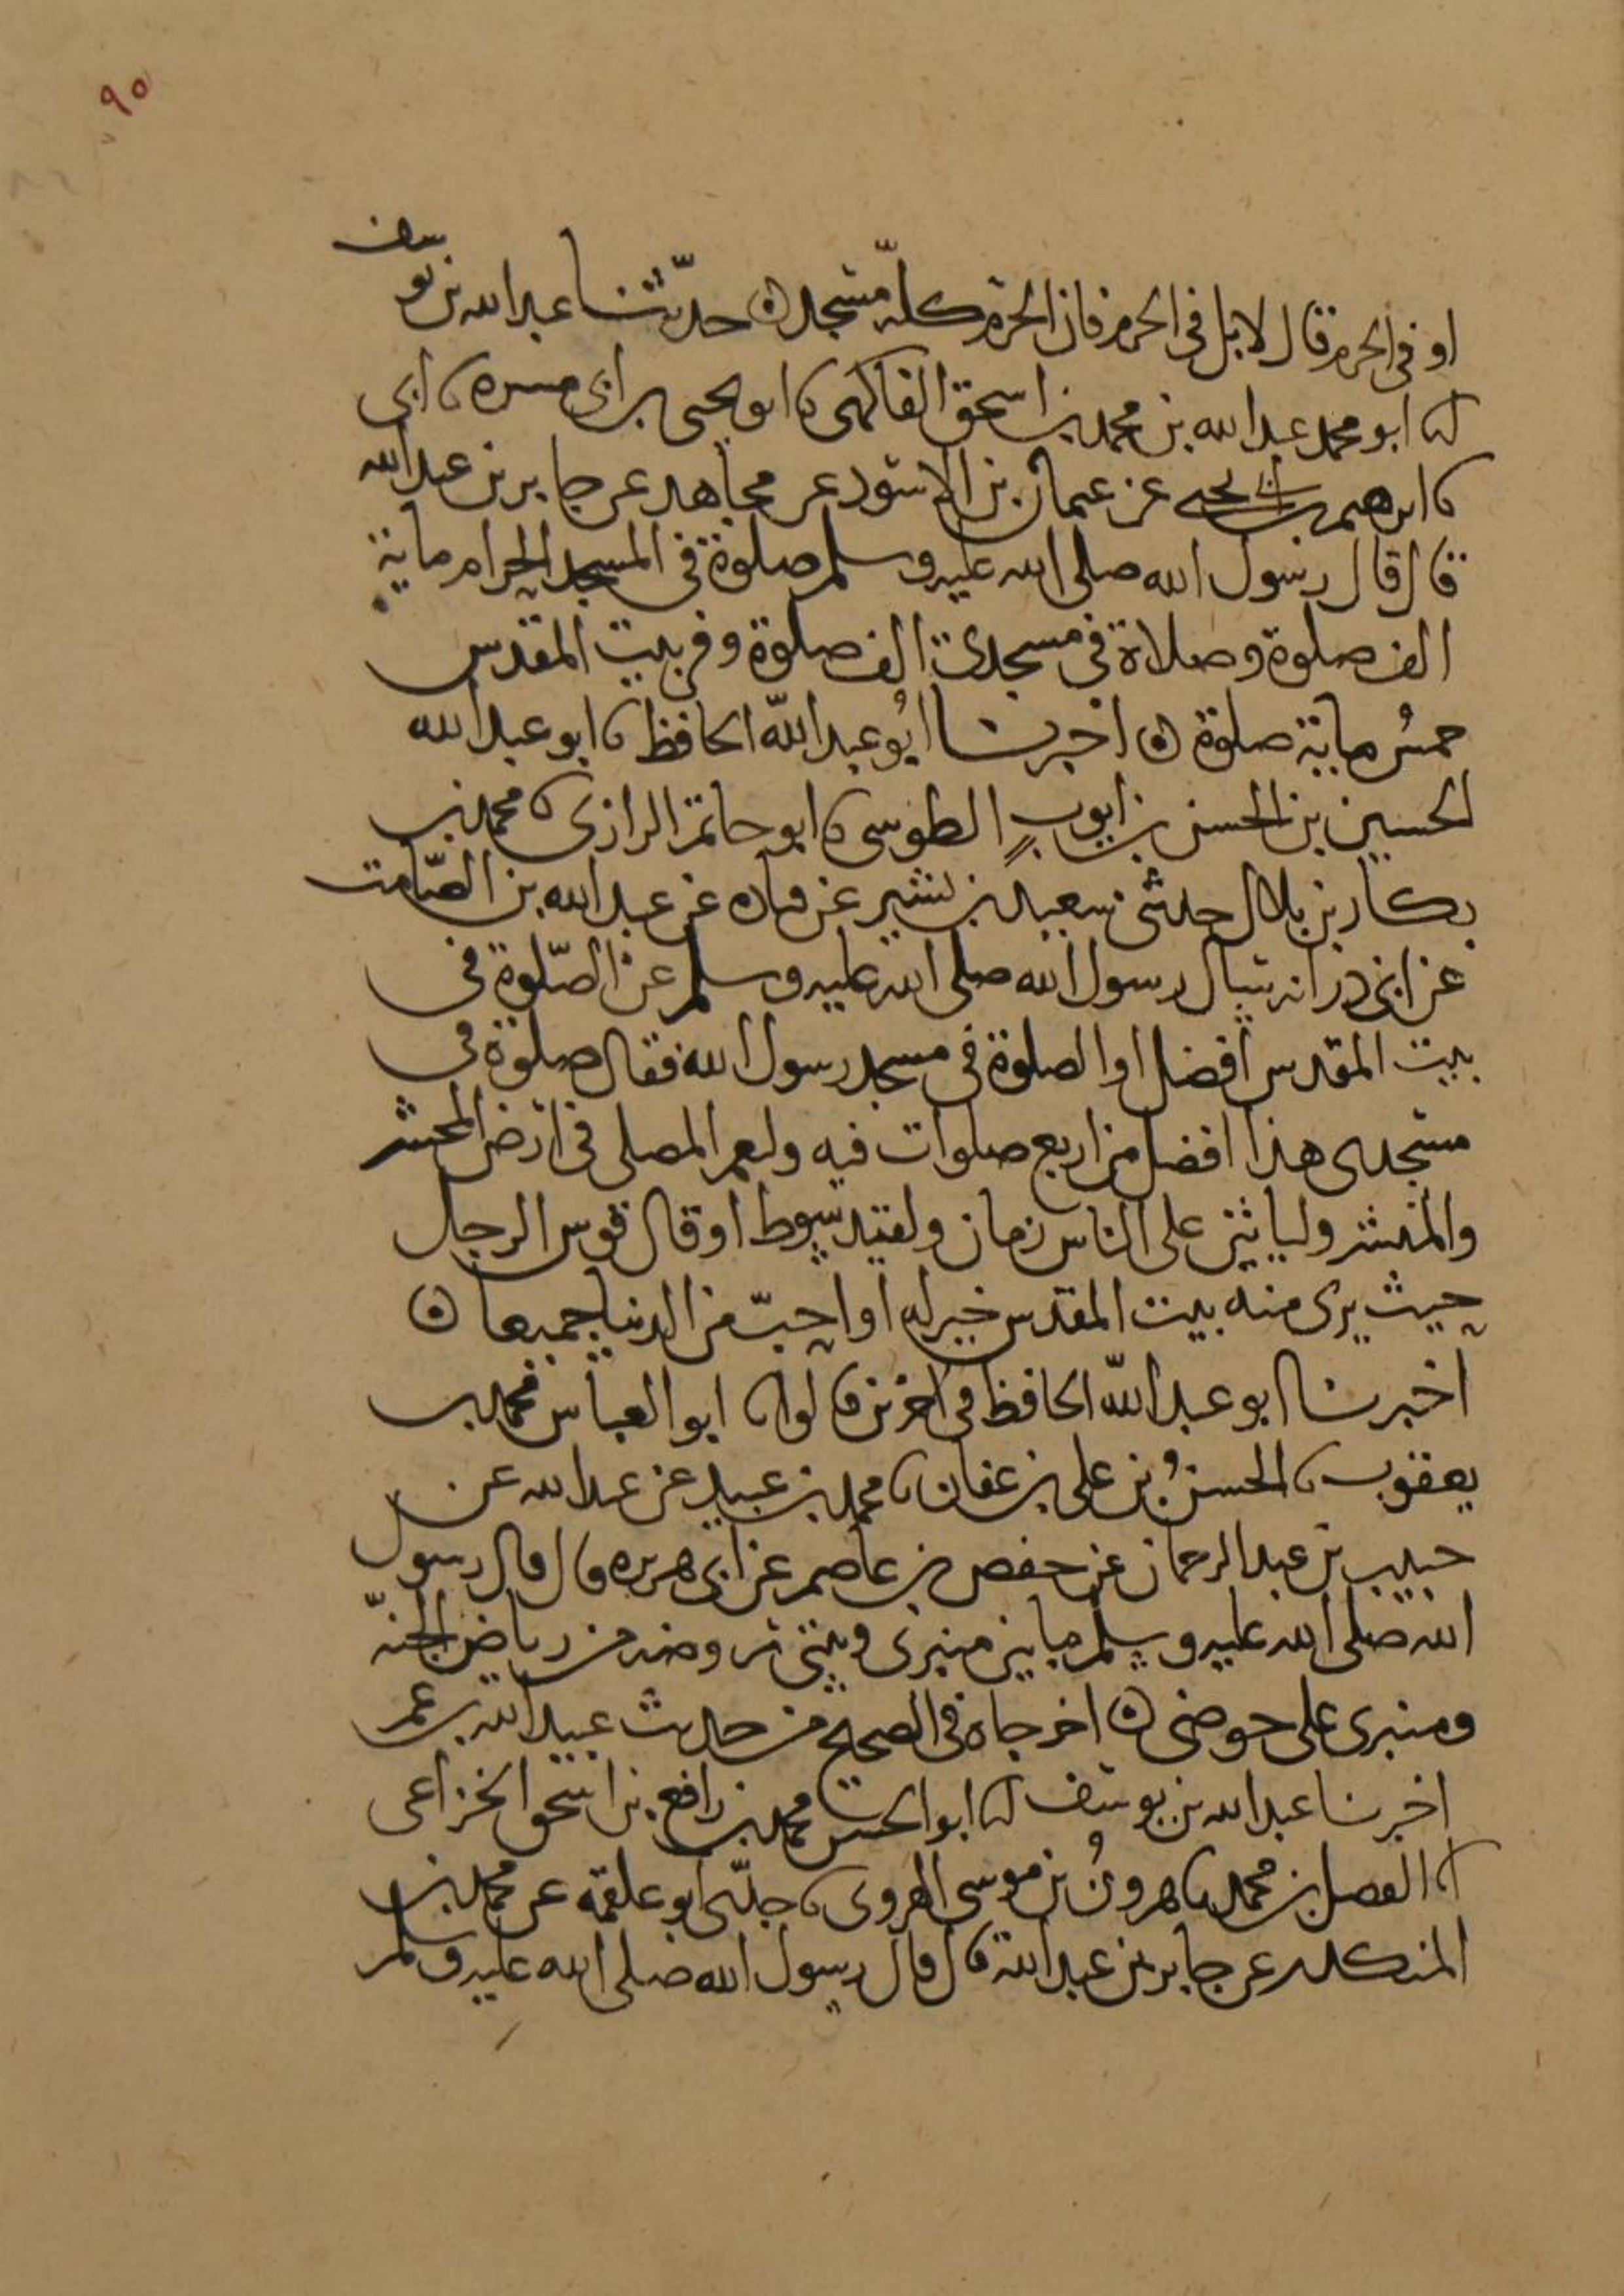 ٩٥
او في الحرم قال لا بل في الحرم فان الحرم كله مسجد ه حدثنا عبد الله بن يوسف
انا ابو محمد عبد الله بن محمد بن اسحق الفاكهي نا ابو يحيى بن ابي مسره نا ابي
نا ابرهيم بن ابي يحيى عن عثمان بن الاسود عن مجاهد عن جابر بن عبد الله
قال قال رسول الله صلى الله عليه وسلم صلوة في المسجد الحرام ماية
الف صلوة وصلاة في مسجدي الف صلوة وفي بيت المقدس
خمس ماية صلوة ه اخبرنا ابو عبد الله الحافظ نا ابو عبد الله
الحسين بن الحسن بن ايوب الطوسي نا ابو حاتم الرازي نا محمد بن
بكار بن بلال حدثني سعيد بن بشير عن قتاده عن عبد الله بن الصامت
عن ابي ذر انه سال رسول الله صلى الله عليه وسلم عن الصلوة في
بيت المقدس افضل او الصلوة في مسجد رسول الله فقال صلوة في
مسجدي هذا افضل من اربع صلوات فيه ولنعم المصلى في ارض المحشر
والمنشر ولياتين على الناس زمان ولقيد سوط او قال قوس الرجل
حيث يرى منه بيت المقدس خير له او احب من الدنيا جميعا ه
اخبرنا ابو عبد الله الحافظ في اخرين قالوا نا ابو العباس محمد بن
يعقوب نا الحسن بن علي بن عفان نا محمد بن عبيد عن عبيد الله عن
حبيب بن عبد الرحمان عن حفص بن عاصم عن ابي هريره قال قال رسول
الله صلى الله عليه وسلم ما بين منبري وبيتي روضه من رياض الجنه
ومنبري على حوضي ه اخرجاه في الصحيح من حديث عبيد الله بن عمر
اخبرنا عبد الله بن يوسف انا ابو الحسن محمد بن رافع بن اسحق الخزاعي
انا الفضل بن محمد نا هرون بن موسى الفروي نا جدي ابو علقمه عن محمد بن
المنكدر عن جابر بن عبد الله قال قال رسول الله صلى الله عليه وسلم